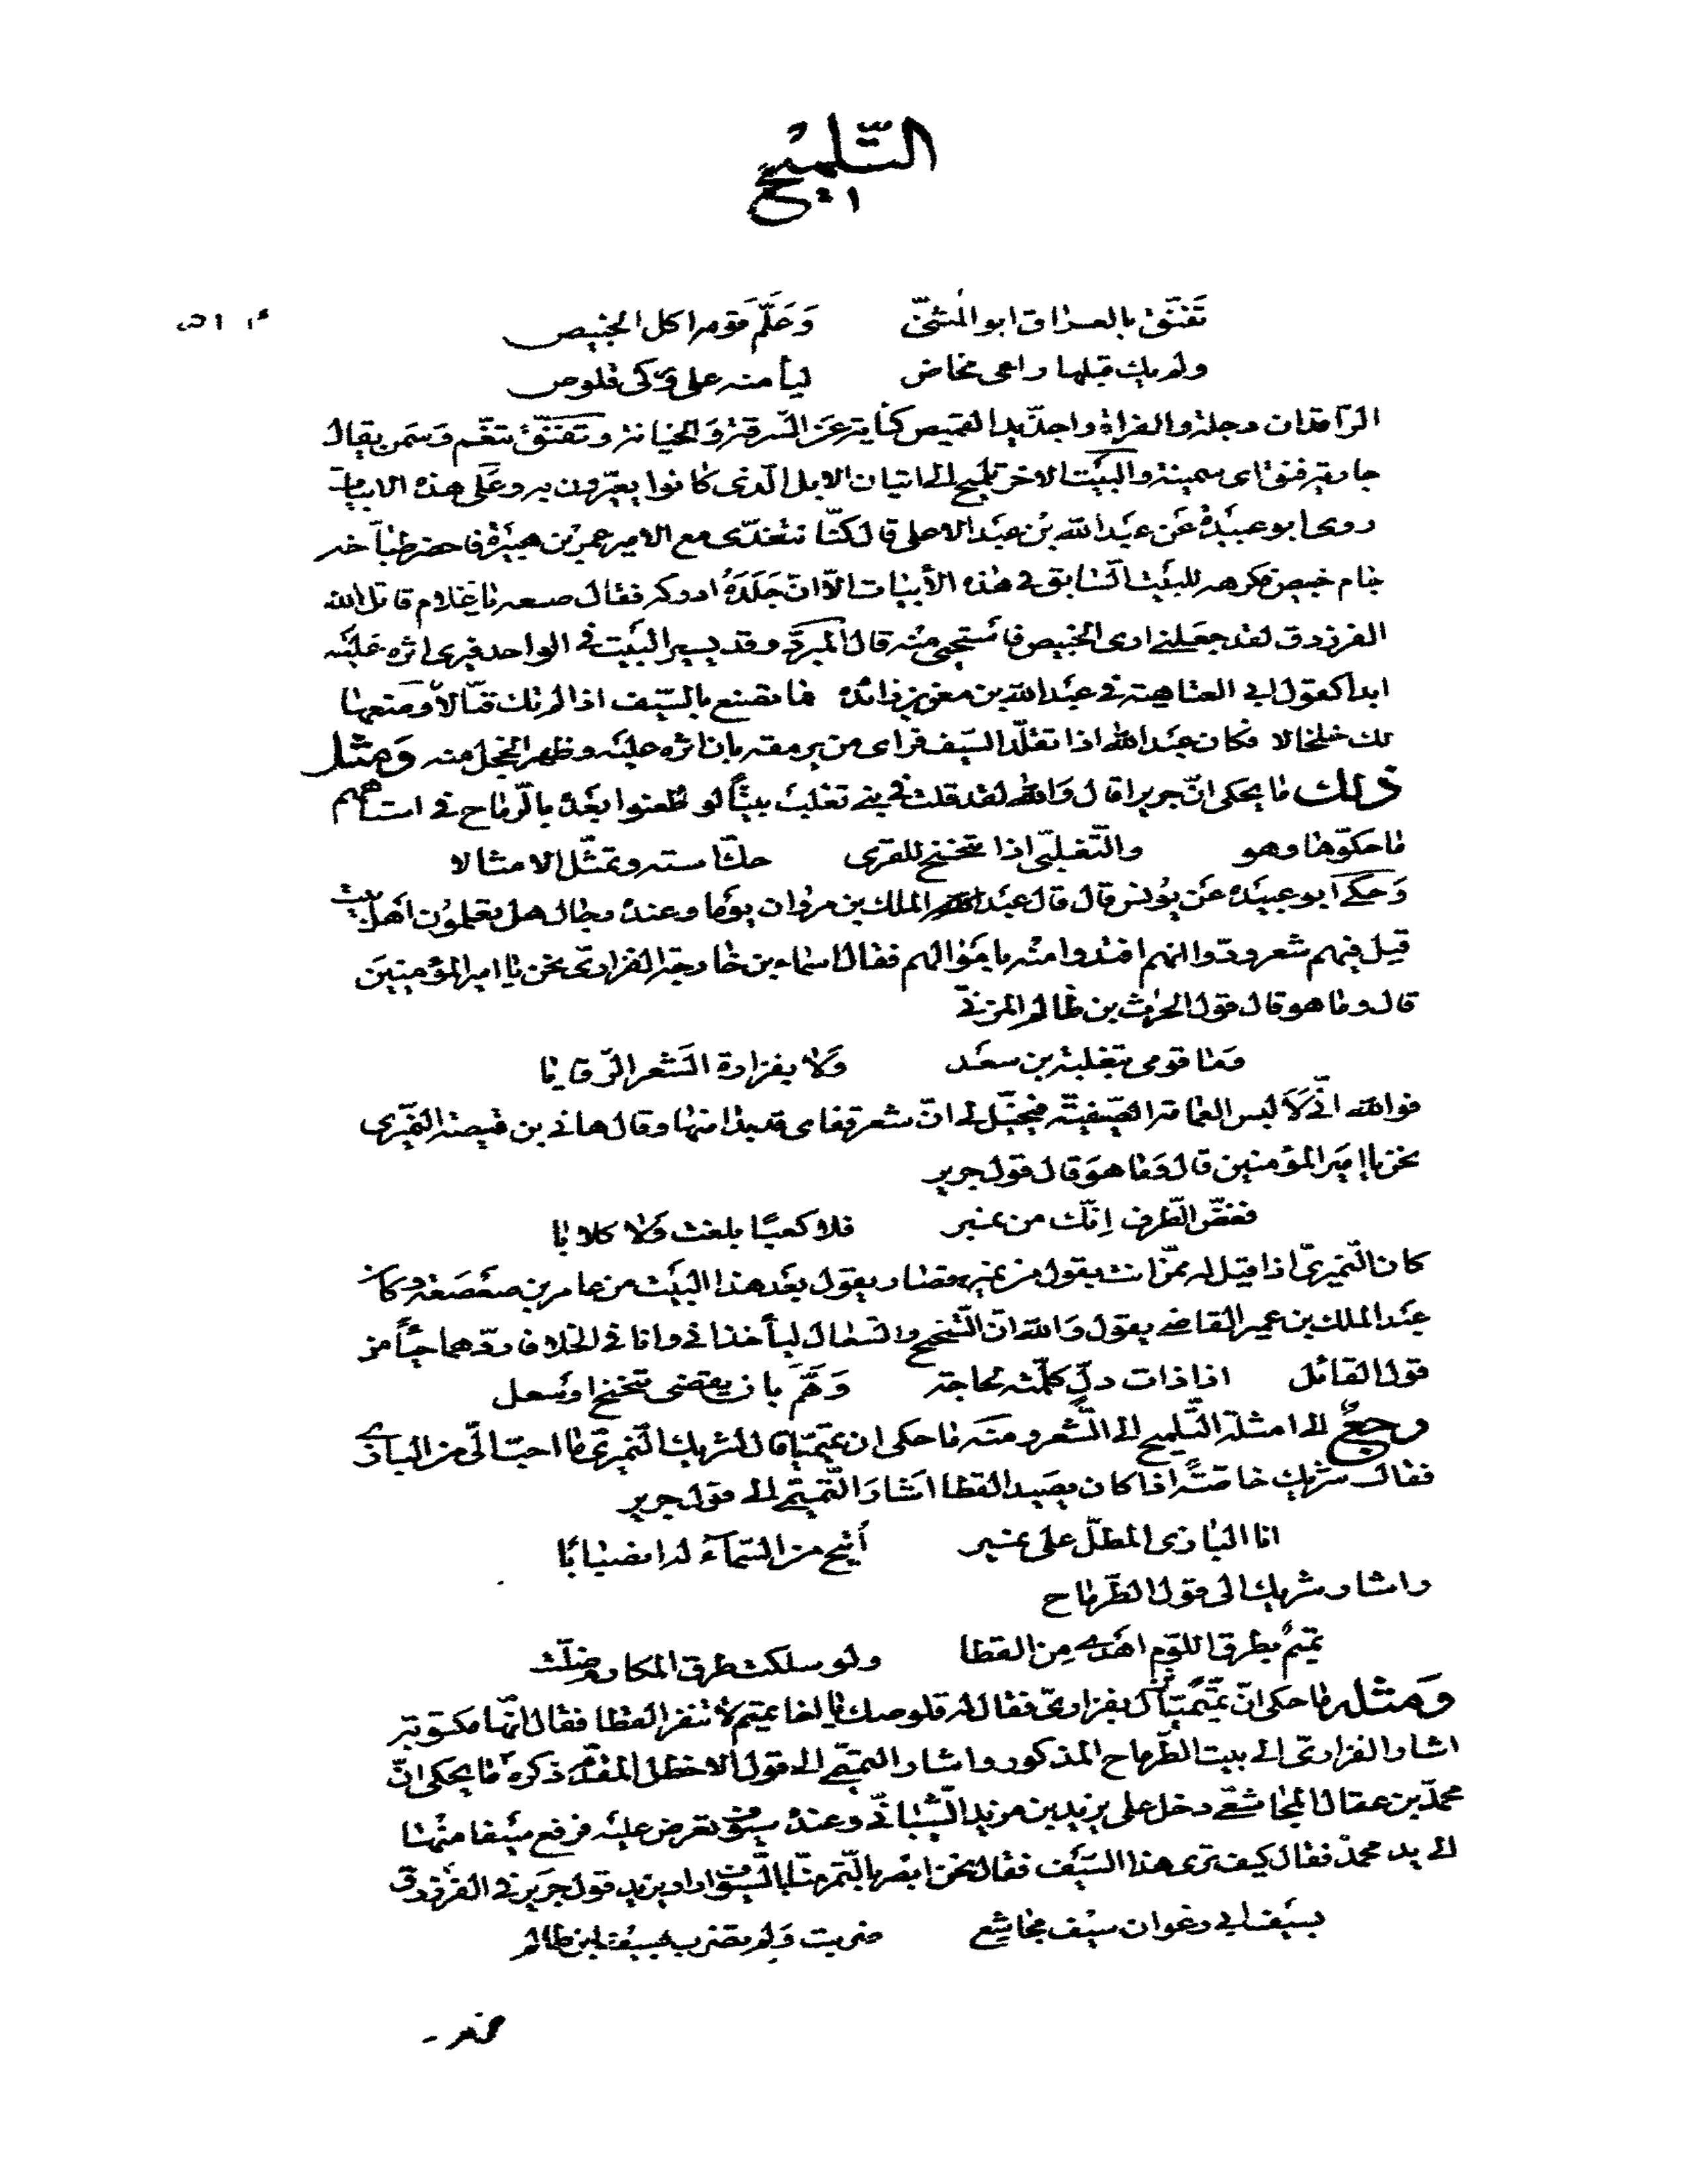 التلميح
تَفَنّقَ بالعراق ابو المُثنّى وَعَلّمَ قومه اكل الخبيص
ولم يك قبلها راعى مخاض ليأمنه على وركى قلوص
الرّافدان دجلة والفراة واحذّ يد القميص كناية عَن السّرقة وَالخيانة وتَفَنّقَ تنعّم وَسَمِن يقال
جارية فنق اى سمينة والبَيْت الاخر تلميح الى اتيان الابل الّذى كانوا يعيّرون به وعَلى هذه الابيات
روى ابو عبيدة عَن عبد الله بْن عبد الاعلى قال كنّا نتغدّى مع الامير عمر بْن هبيرة فاحضر طبّاخه
جام خبيص فكرهه للبيْت السّابق فى هذه الأبيات الاّ انّ جَلَدَهُ ادركه فقال ضعه يا غلام قاتل الله
الفرزدق لقد جعَلنى ارى الخبيص فأستحيى منْه قال المبرّد وقد يسير البَيْت فى الواحد فيرى اثره عَليْه
ابدا كقول ابى العتاهية فى عبد الله بن معن بن زائدة فما تصنع بالسّيف اذا لم تك قتّالا وصغها
لك خلخالا فكان عبد الله اذا تقلّد السّيف فراى من يرمقه بان اثره عليْه وظهر الخجل منه وَمثل
ذلك ما يحكى انّ جريرا قال وَالله لقد قلت فى بنى تغلب بيتًا لو طُعنوا بعْدَهُ بالرّماح فى استاههم
ما حكّوها وهو والتّغلبّى اذا تنحنح للقرى حكّ استه وتمثّل الامثالا
وَحكى ابو عبيدة عَن يُونس قال قال عبد الملك بن مروان يَوما وعنده رجال هل تعلمون اهل بيت
قيل فيهم شعر ودّوا انهم افتدوا منْه باموالهم فقال اسماء بن خارجة الفزارىّ نحن يا امير المؤمنين
قال وما هو قال قول الحرث بن ظالم المرّىّ
وَما قومى بثعلبة بن سعْد وَلا بفزارة الشّعر الرّقابا
فوالله انّى لاَلبس العمامة الصّفيقة فيخيّل لى انّ شعر قفاى قد بدا منها وقال هانى بن قبيصة النّميرى
نحن يا امير المؤمنين قال وَما هوَ قال قول جرير
فغضّ الطّرف اِنّك من نمير فلا كعبًا بلغت وَلا كلابا
كان النّميرىّ اذا قيل له ممّن انت يقول من نمير فصار يقول بعْد هذا البيْت من عامر بن صَعْصَعَة وكان
عبْد الملك بن عمير القاضى يقول وَالله انّ التّنحنح والسّعال ليأخذانى وانا فى الخلاء فاردّهما حياً من
قول القائل اذا ذات دلّ كلّمته لحاجة وَهَمّ بان يقضى تنحنح او سعل
رجعٌ الى امثلة التّلميح الى الشّعر ومنه ما حكى ان تميميّا قال لشريك النّميرىّ ما احبّ الىّ من البازى
فقال شريك خاصّةً اذا كان يصيد القطا اشارَ التّميمىّ الى قول جرير
انا البازى المطلّ على نمير أُتيح من السّمآء لها انصبابا
واشار شريك الى قول الطّرمّاح
تميمٌ بطرق اللّؤم اهدى مِن القطا ولو سلكت طرق المكارم ضلّت
وَمثله ما حكى انّ تميميّا نزل بفزارىّ فقال له قلوصك يا اخا تميم لا تنفر القطا فقال انّها مكتوبة
اشار الفزارىّ الى بيت الطّرمّاح المذكور واشار التميمىّ الى قول الاخطل المتقدّم ذكره ما يحكى انّ
محمّد بن عقال المجاشعى دخل على يزيد بن مزيد الشّيبانىّ وعنده سيوف تعرض عليْه فرفع سيْفا منْها
الى يد محمّد فقال كيف ترى هذا السّيْف فقال نحن ابصر بالتّمر منّا بالسّيوف اراد يزيد قول جرير فى الفرزدق
بسيْف ابى رغوان سيْف مجاشع ضربت وَلم تضرب بسيْف ابن ظالم